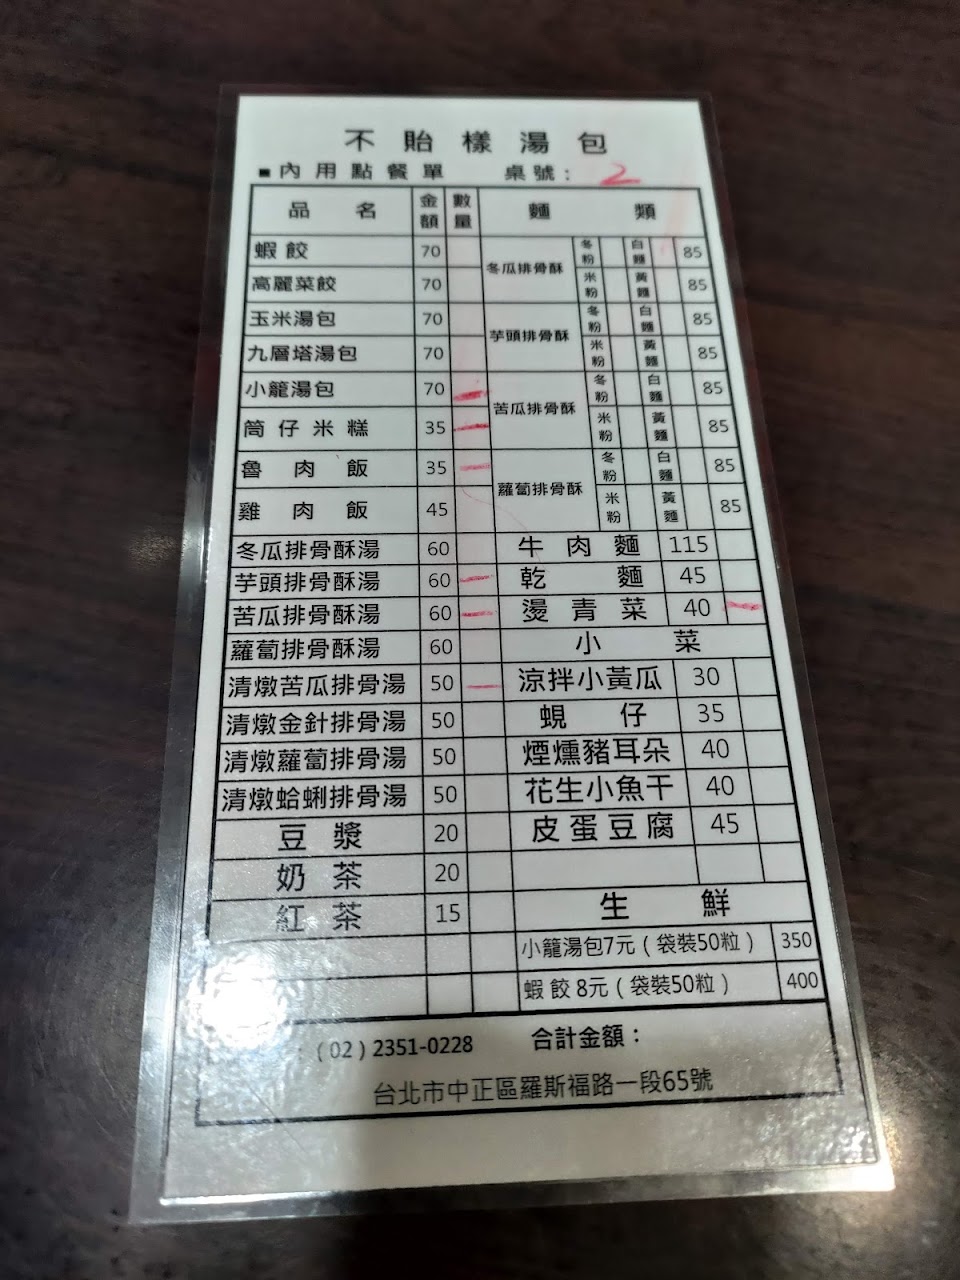 不貽樣湯包
■內用點餐單 桌號： 2
品名 金額 數量 麵類
蝦餃 70
高麗菜餃 70
玉米湯包 70
九層塔湯包 70
小籠湯包 70
筒仔米糕 35
魯肉飯 35
雞肉飯 45
冬瓜排骨酥湯 60
芋頭排骨酥湯 60
苦瓜排骨酥湯 60
蘿蔔排骨酥湯 60
清燉苦瓜排骨湯 50
清燉金針排骨湯 50
清燉蘿蔔排骨湯 50
清燉蛤蜊排骨湯 50
豆漿 20
奶茶 20
紅茶 15
冬瓜排骨酥 冬粉 白麵 85
米粉 黃麵 85
芋頭排骨酥 冬粉 白麵 85
米粉 黃麵 85
苦瓜排骨酥 冬粉 白麵 85
米粉 黃麵 85
蘿蔔排骨酥 冬粉 白麵 85
米粉 黃麵 85
牛肉麵 115
乾麵 45
燙青菜 40
小菜
涼拌小黃瓜 30
蜆仔 35
煙燻豬耳朵 40
花生小魚干 40
皮蛋豆腐 45
生鮮
小籠湯包7元（袋裝50粒） 350
蝦餃8元（袋裝50粒） 400
：（02）2351-0228 合計金額：
台北市中正區羅斯福路一段65號